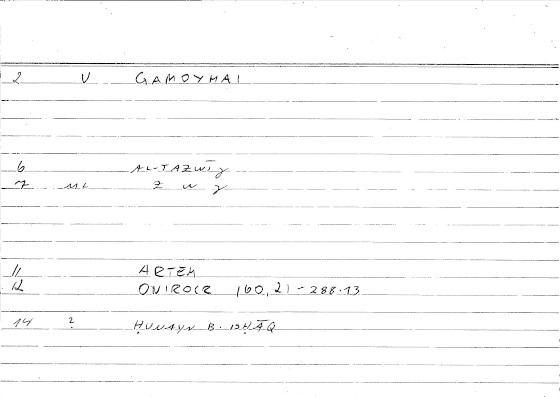 2 V GAMOYMAI
6 AL-TAZWĪǧ
7 ML z w ǧ
11 ARTEM
12 ONIROCR 160,21-288.13
14 ? ḤUNAYN B. ISḤĀQ